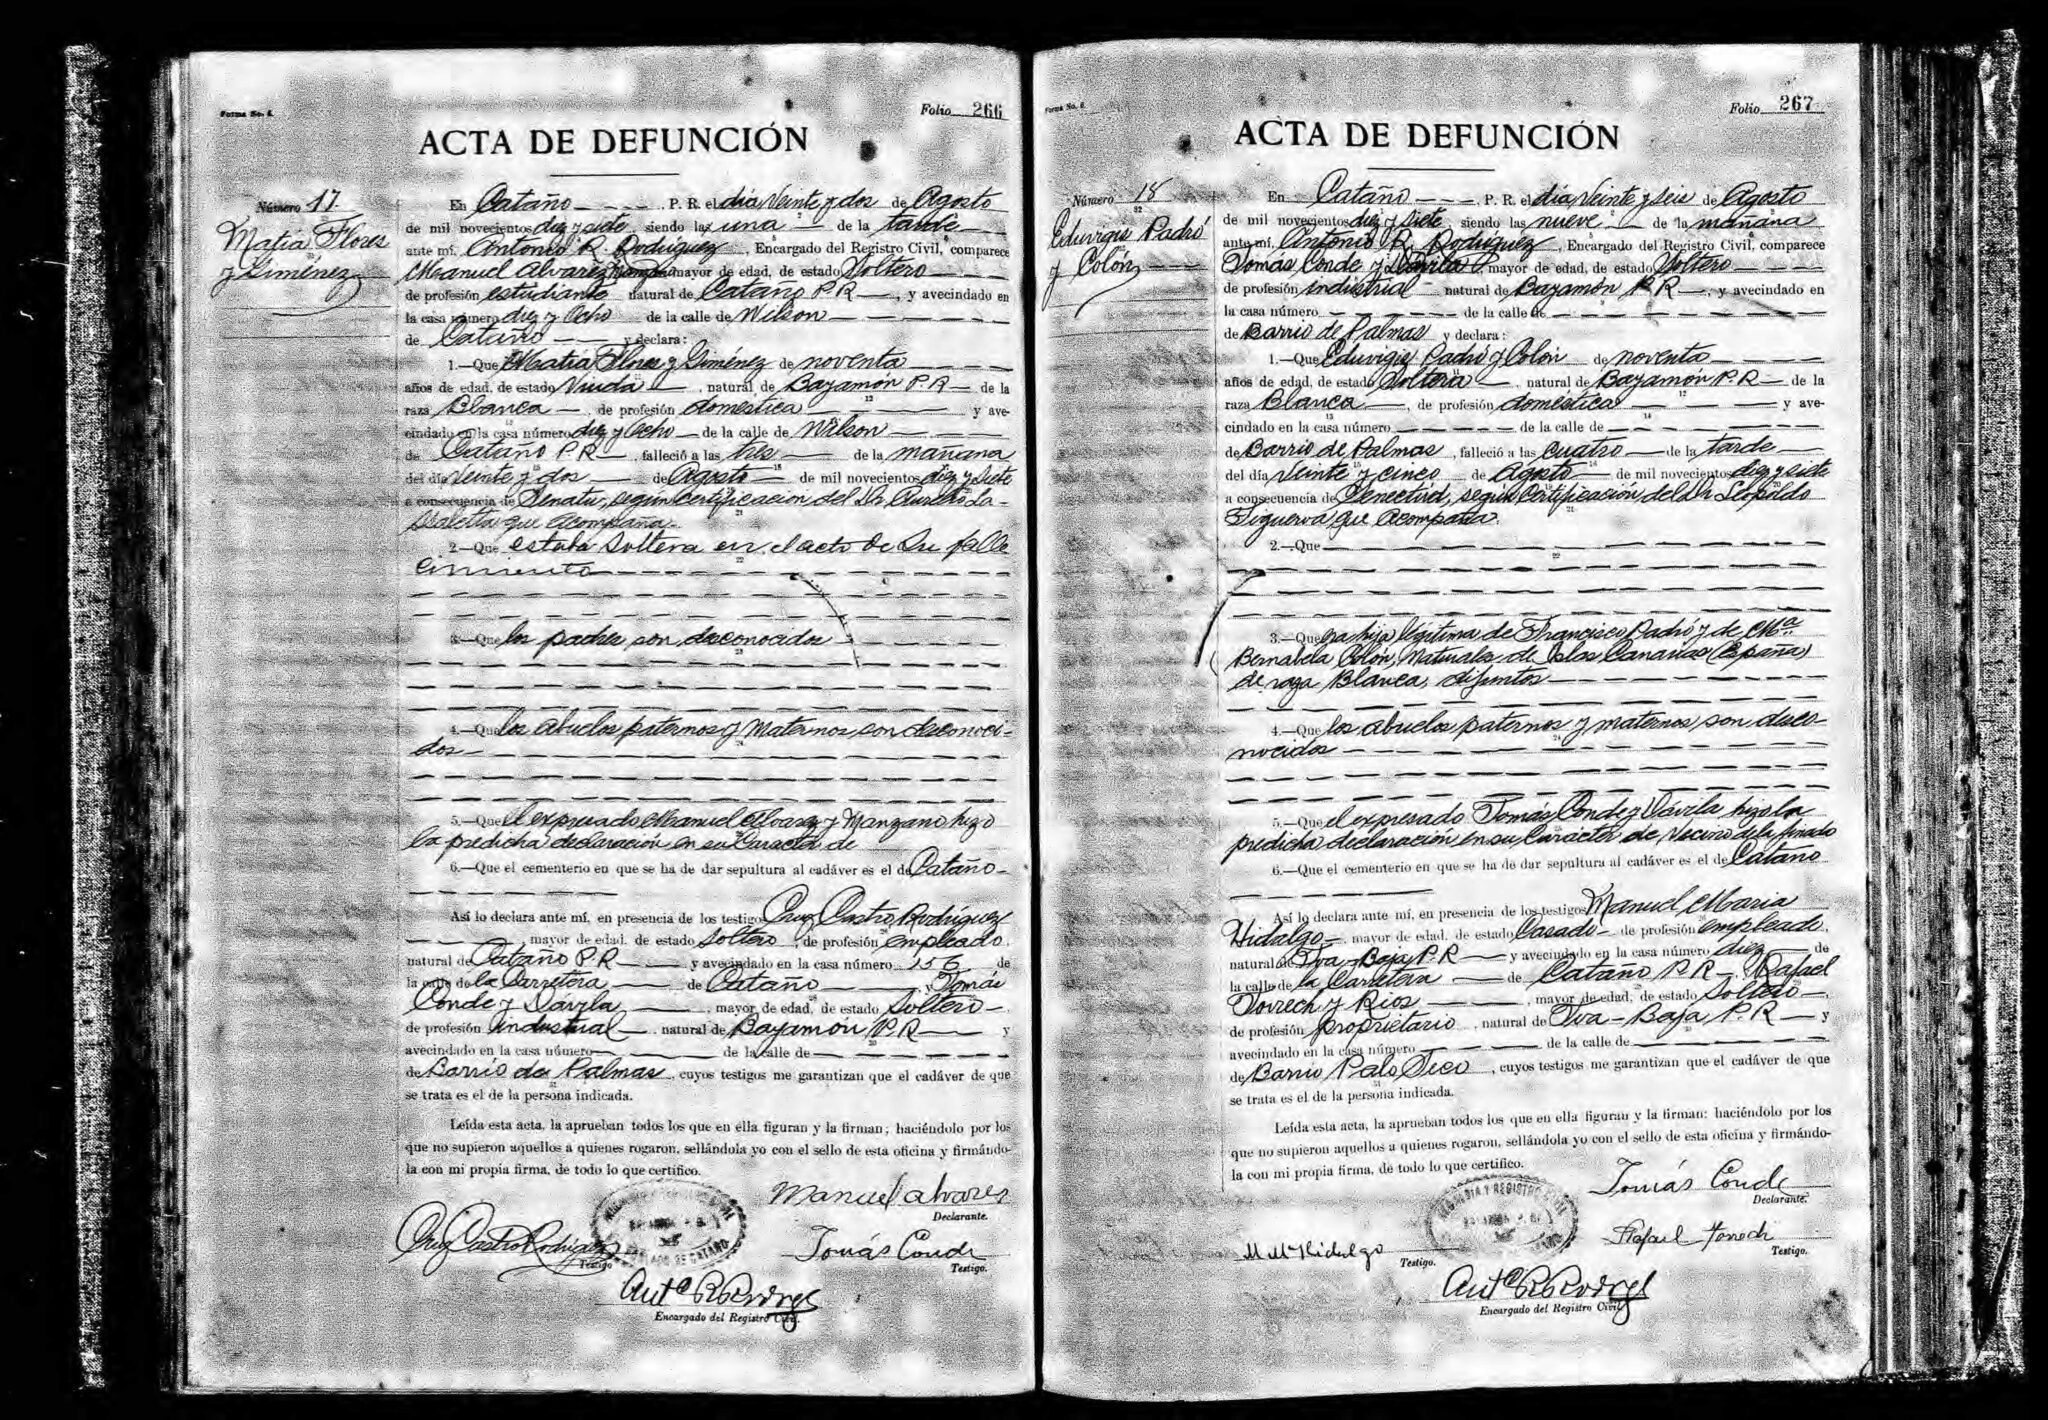 Forma No. 6.
Folio 266
ACTA DE DEFUNCIÓN
Número 17
Matia Flores
y Giménez
En Cataño P. R. el día Veinte y dos de Agosto
de mil novecientos diez y siete siendo la una de la tarde
ante mí, Antonio R. Rodríguez, Encargado del Registro Civil, comparece
Manuel Alvarez mayor de edad, de estado Soltero
de profesión estudiante natural de Cataño P R, y avecindado en
la casa número diez y Ocho de la calle de Wilson
de Cataño y declara:
1.—Que Matia Flores y Giménez de noventa
años de edad, de estado Viuda, natural de Bayamón P. R de la
raza Blanca, de profesión domestica y ave-
cindado en la casa número diez y Ocho de la calle de Wilson
de Cataño P R falleció a las tres de la mañana
del día Veinte y dos de Agosto de mil novecientos diez y siete
a consecuencia de según Certificacion del Dr
que acompaña
2.—Que estaba Soltera en el acto de Su falle
cimiento
3.—Que los padres son desconocidos
4.—Que los abuelos paternos y Maternos son desconoci-
dos
5.—Que el expresado Manuel Alvarez y Manzano hizo
la predicha declaración en su Caracter de
6.—Que el cementerio en que se ha de dar sepultura al cadáver es el de Cataño
Así lo declara ante mí, en presencia de los testigos Cruz Castro Rodríguez
mayor de edad, de estado Soltero, de profesión empleado,
natural de Cataño P. R y avecindado en la casa número 156 de
la calle de la Carretera de Cataño y Tomás
Conde y Davila, mayor de edad, de estado Soltero
de profesión industrial natural de Bayamón P. R y
avecindado en la casa número de la calle de
de Barrio de Palmas, cuyos testigos me garantizan que el cadáver de que
se trata es el de la persona indicada.
Leída esta acta, la aprueban todos los que en ella figuran y la firman; haciéndolo por los
que no supieron aquellos a quienes rogaron, sellándola yo con el sello de esta oficina y firmándo-
la con mi propia firma, de todo lo que certifico.
Manuel Alvares
Declarante.
Cruz Castro Rodríguez
Testigo
Tomás Conde
Testigo.
Antº R Rodrgz
Encargado del Registro Civil.
Forma No. 6.
Folio 267
ACTA DE DEFUNCIÓN
Número 18
Eduvigis Padró
y Colón
En Cataño P. R. el día Veinte y seis de Agosto
de mil novecientos diez y siete siendo las nueve de la mañana
ante mí, Antonio R. Rodríguez, Encargado del Registro Civil, comparece
Tomás Conde y Dávila mayor de edad, de estado Soltero
de profesión industrial natural de Bayamón P R, y avecindado en
la casa número de la calle de
de Barrio de Palmas y declara:
1.—Que Eduvigis Padró y Colón de noventa
años de edad, de estado Soltera, natural de Bayamón P. R de la
raza Blanca, de profesión domestica y ave-
cindado en la casa número de la calle de
de Barrio de Palmas, falleció a las cuatro de la tarde
del día Veinte y cinco de Agosto de mil novecientos diez y siete
a consecuencia de Senectud, según Certificación del Dr Leopoldo
Figueroa que acompaña.
2.—Que
3.—Que era hija legitima de Francisco Padró y de Mª
Bernabela Colón, Naturales de Islas Canarias (España)
de raza Blanca, difuntos
4.—Que los abuelos paternos y maternos son desco-
nocidos
5.—Que el expresado Tomás Conde y Dávila hizo la
predicha declaración en su Carácter de Vecino de la finada
6.—Que el cementerio en que se ha de dar sepultura al cadáver es el de Cataño
Así lo declara ante mí, en presencia de los testigos Manuel Maria
Hidalgo, mayor de edad, de estado Casado de profesión empleado,
natural de Toa Baja P R y avecindado en la casa número diez de
la calle de la Carretera de Cataño P R, Rafael
Torrech y Rios, mayor de edad, de estado Soltero,
de profesión proprietario, natural de Toa-Baja, P. R y
avecindado en la casa número de la calle de
de Barrio Palo Seco, cuyos testigos me garantizan que el cadáver de que
se trata es el de la persona indicada.
Leída esta acta, la aprueban todos los que en ella figuran y la firman: haciéndolo por los
que no supieron aquellos a quienes rogaron, sellándola yo con el sello de esta oficina y firmándo-
la con mi propia firma, de todo lo que certifico.
Tomás Conde
Declarante.
M Mª Hidalgo
Testigo.
Rafael Torrech
Testigo.
Antº R Rodrgz
Encargado del Registro Civil